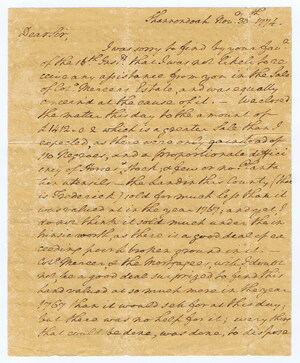 Shanondoah Nov.r 30th 1774.
Dear Sir,
I was sorry to find by your fav.r
of the 16th Inst. that I was not likely to re-
ceive any assistance from you in the Sale
of Col. Mercers Estate, and was equally
concernd at the cause of it. We closed
the matter this day to the amount of
which is a greater Sale than I
expected, as there were only
Negroes, and a proportionate diffici-
ency of Horses, Stock, & few or no Planta-
tion utensils. The Land in this County, (that
is Frederick) sold for much less than it
was valued at in the year 1767; and yet I
do not think it sold much under the in-
trinsic worth, as there is a good deal of ex-
ceeding poor broken ground in it.
Col. Mercer, & the Mortgagees, will I doubt
not be a good deal surprized to find this
Land valued at so much more in the year
1767 than it would sell for at this day;
but there was no help for it; every thing
that could be done, was done, to dispose